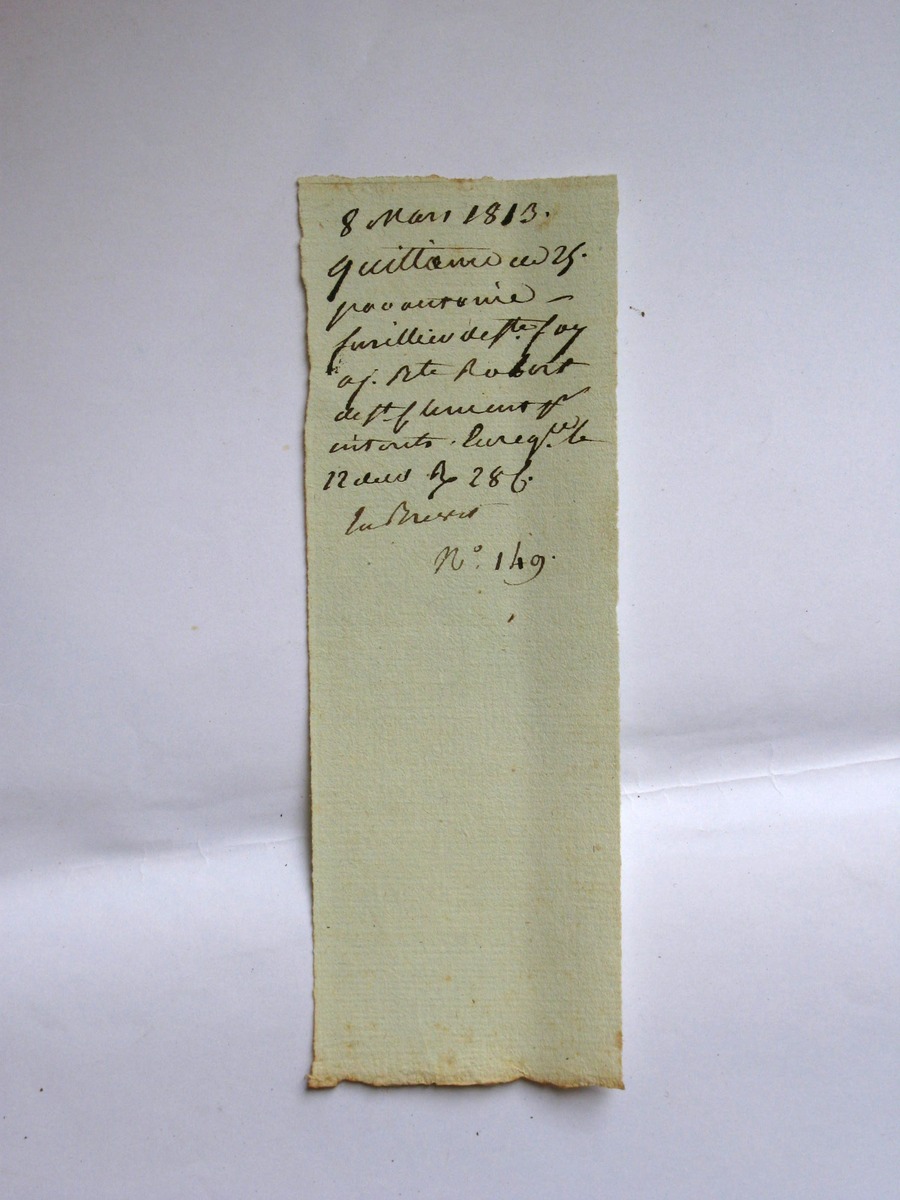 8 Mars 1813.
quittance de 25.
par antoine
furillier de ste foy
a j. Bte Robert
de st Clement pr
interets. Enregtré le
12 dud R 28 c.
En Brevet
N.° 149.